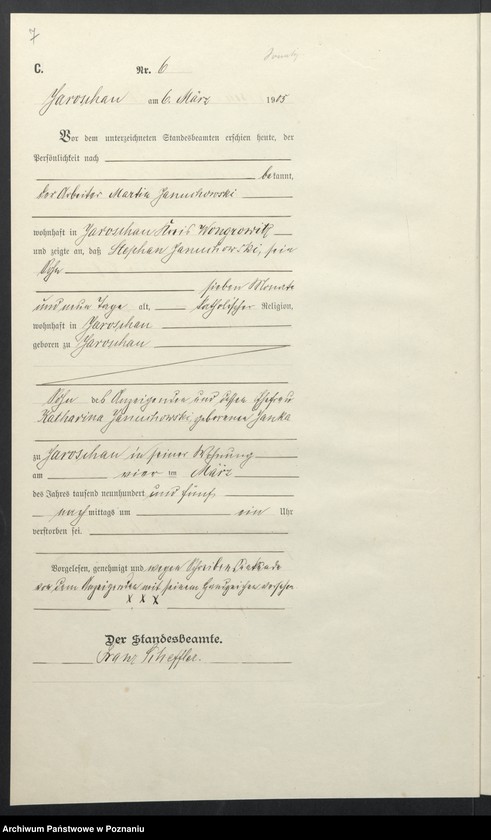 7
C.
Nr. 6
Jaroschau am 6. März 1905
Vor dem unterzeichneten Standesbeamten erschien heute, der
Persönlichkeit nach
bekannt,
der Arbeiter Martin Januchowski
wohnhaft in Jaroschau Kreis Wongrowitz
und zeigte an, daß Stephan Januchowski, sein
Sohn
sieben Monate
und neun Tage alt, katholischer Religion,
wohnhaft in Jaroschau
geboren zu Jaroschau
Sohn des Anzeigenden und dessen Ehefrau
Katharina Januchowski geborenen Janka
zu Jaroschau in seiner Wohnung
am vier ten März
des Jahres tausend neunhundert und fünf
nachmittags um ein Uhr
verstorben sei.
Vorgelesen, genehmigt und wegen Schreibens
von dem Anzeigenden mit seinem Handzeichen versehen
x x x
Der Standesbeamte.
Franz Scheffler.
Archiwum Państwowe w Poznaniu